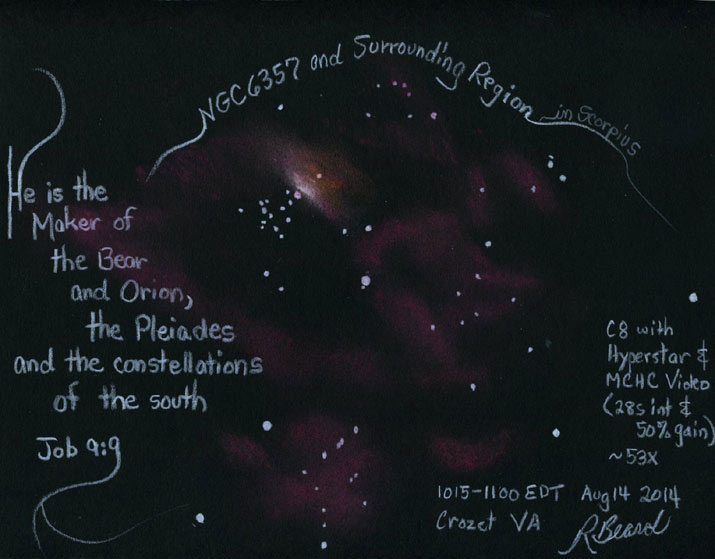 NGC6357 and Surrounding Region in Scorpius
He is the
Maker of
the Bear
and Orion,
the Pleiades
and the constellations
of the south
Job 9:9
C8 with
Hyperstar &
MCHC Video
(28s int &
50% gain)
~53x
1015-1100 EDT Aug 14 2014
Crozet VA RBeard